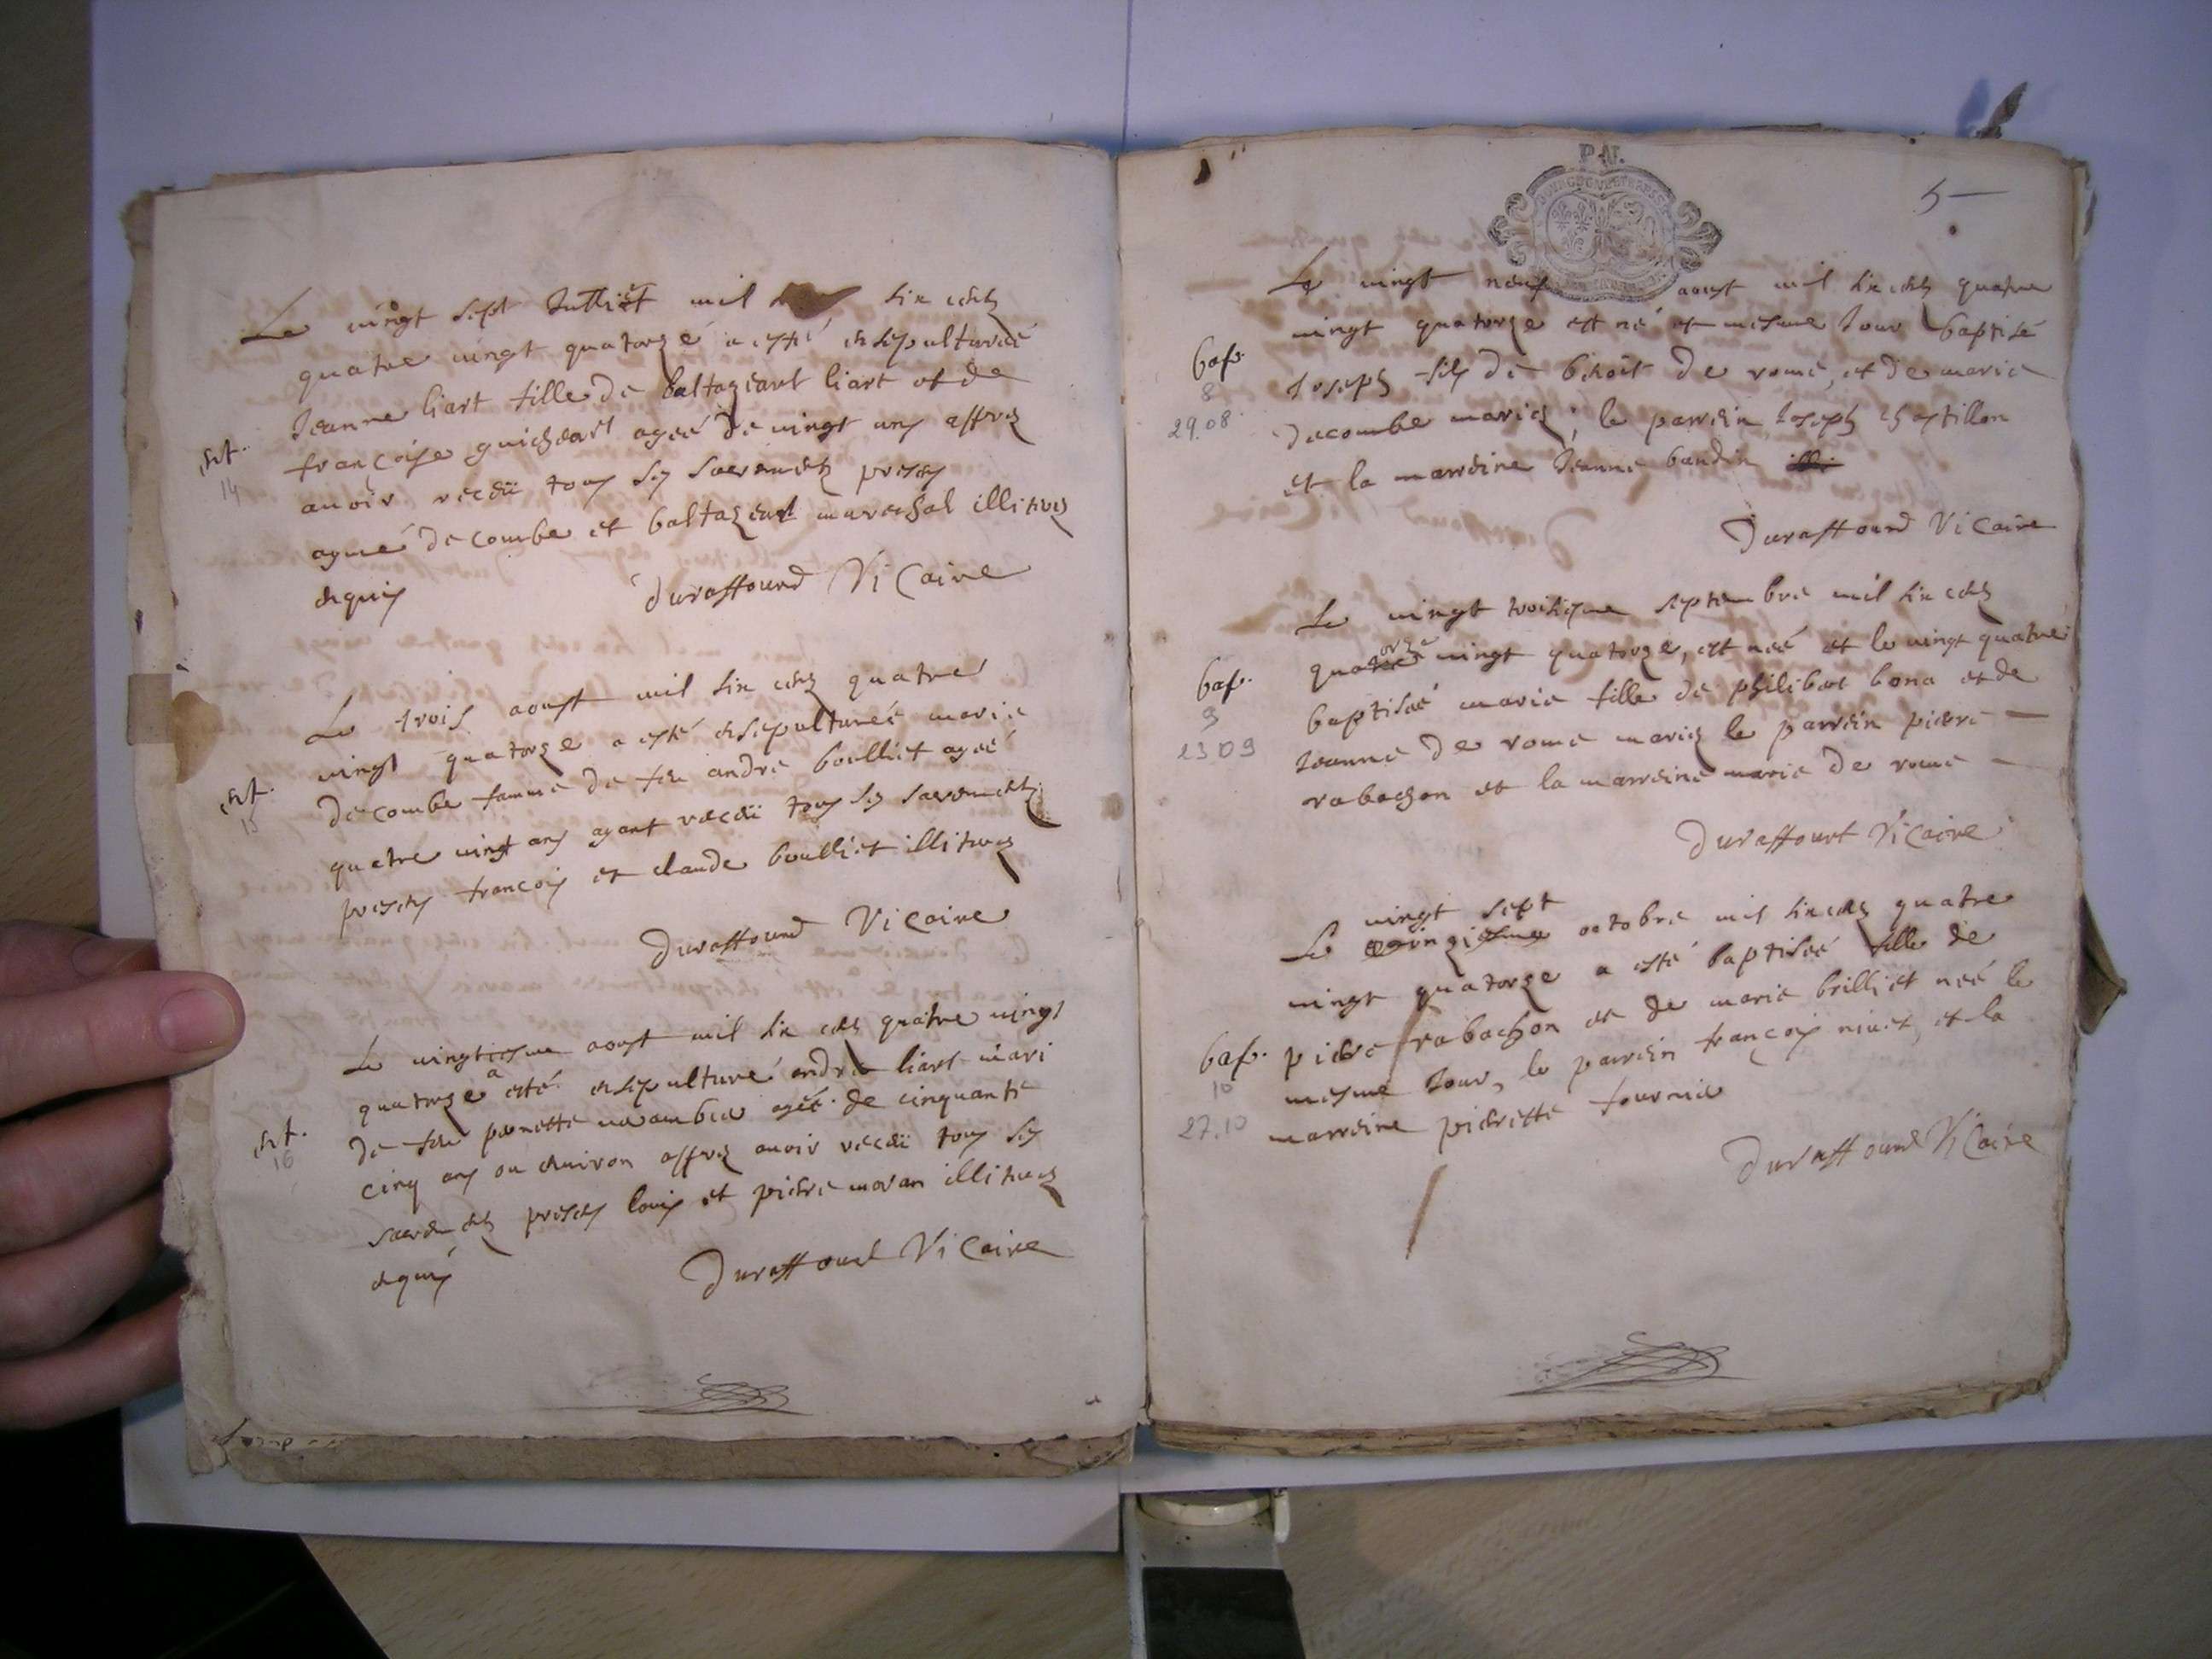 Le vingt sept Julliet mil six cents
quatre vingt quatorze a esté ensepulturéé
Jeanne liart fille de baltazeard liart et de
françoise guicheart ageé de vingt ans affres
avoir receü tous ses sacrements presens
aymé decombe et baltazeard mareschal illitires
enquis
Duraffourd Vicaire
ent.
14
Le trois aoust mil six cens quatre
vingt quatorze a esté ensepultureé marie
decombe famme de feu andré boulliet ageé
quatre vingt ans ayant receü tous ses sacrements
presens françois et claude boulliet illitires
Duraffourd Vicaire
ent.
15
Le vingtiesme aoust mil six cens quatre vingt
quatorze a esté ensepulturé andre liart mari
de feu pernette agéé de cinquante
cinq ans ou environ affres avoir receü tous ses
sacrements presens louis et pierre moran illitires
enquis
Duraffourd Vicaire
ent.
16
P.N.
5
Le vingt neuf aoust mil six cens quatre
vingt quatorze est né et mesme Jour baptisé
Joseph fils de benoit de rome, et de marie
decombe mariés, le parrein Joseph chastillon
et la marreine Jeanne baudin
Duraffourd Vicaire
bap.
8
29.08
Le vingt troisiesme septembre mil six cens
quatre vingt quatorze, est neé et le vingt quatre
baptiseé marie fille de philibert bona et de
Jeanne de rome mariés le parrein pierre
rabachon et la marreine marie de rome
Duraffourt Vicaire
bap.
9
23 09
Le vingt sept octobre mil six cens quatre
vingt quatorze a esté baptiseé fille de
pierre rabachon et de marie brilliet neé le
mesme Jour, le parrein françois nivet, et la
marreine pierrette fournie
Duraffourd Vicaire
bap.
10
27.10